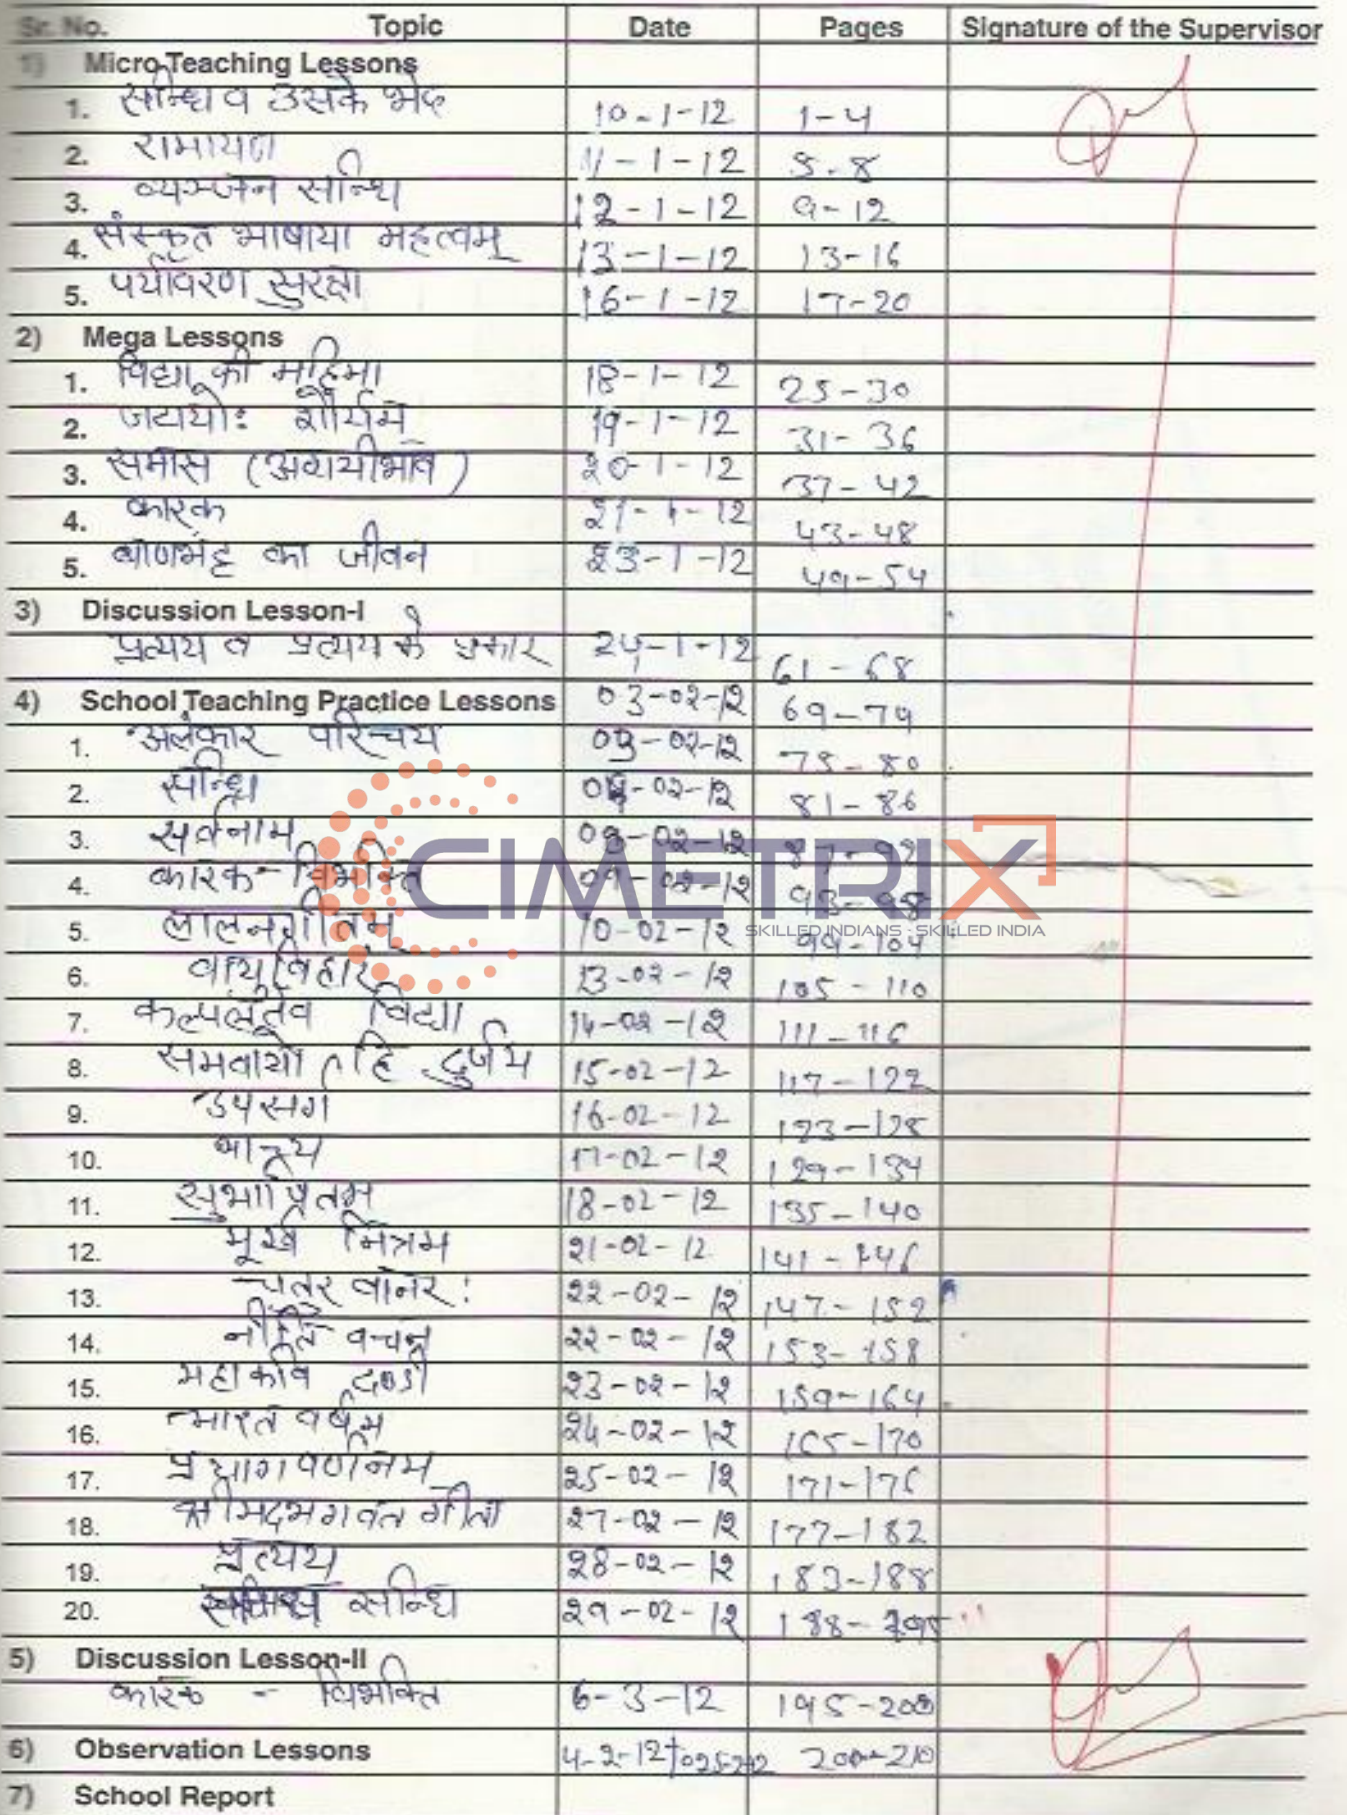 Sr. No. Topic Date Pages Signature of the Supervisor
1) Micro Teaching Lessons
1. सन्धि व उसके भेद 10-1-12 1-4
2. रामायण 11-1-12 5-8
3. व्यञ्जन सन्धि 12-1-12 9-12
4. संस्कृत भाषाया महत्वम् 13-1-12 13-16
5. पर्यावरण सुरक्षा 16-1-12 17-20
2) Mega Lessons
1. विद्या की महिमा 18-1-12 25-30
2. जटायोः शौर्यम 19-1-12 31-36
3. समास (अव्ययीभाव) 20-1-12 37-42
4. कारक 21-1-12 43-48
5. बाणभट्ट का जीवन 23-1-12 49-54
3) Discussion Lesson-I
प्रत्यय व प्रत्यय के प्रकार 24-1-12 61-68
4) School Teaching Practice Lessons 03-02-12 69-74
1. अलंकार परिचय 03-02-12 75-80
2. सन्धि 02-12 81-86
3. सर्वनाम 02-12 87-92
4. कारक-विभक्ति 09-02-12 93-98
5. लालनगीतम् 10-02-12 99-104
6. वायुविहार 13-02-12 105-110
7. कल्पलतेव विद्या 14-02-12 111-116
8. समवायो हि दुर्जय 15-02-12 117-122
9. उपसर्ग 16-02-12 123-128
10. 17-02-12 129-134
11. सुभाषितम 18-02-12 135-140
12. मूर्ख मित्रम 21-02-12 141-146
13. चतुर वानर: 22-02-12 147-152
14. नीति वचन 22-02-12 153-158
15. महाकवि दण्डी 23-02-12 159-164
16. भारत वर्षम 24-02-12 165-170
17. प्रयागवर्णनम 25-02-12 171-176
18. श्रीमदभगवत गीता 27-02-12 177-182
19. प्रत्यय 28-02-12 183-188
20. सन्धि 29-02-12 188-195
5) Discussion Lesson-II
कारक - विभक्ति 6-3-12 195-200
6) Observation Lessons 4-2-12 210
7) School Report
CIMETRIX
SKILLED INDIANS : SKILLED INDIA